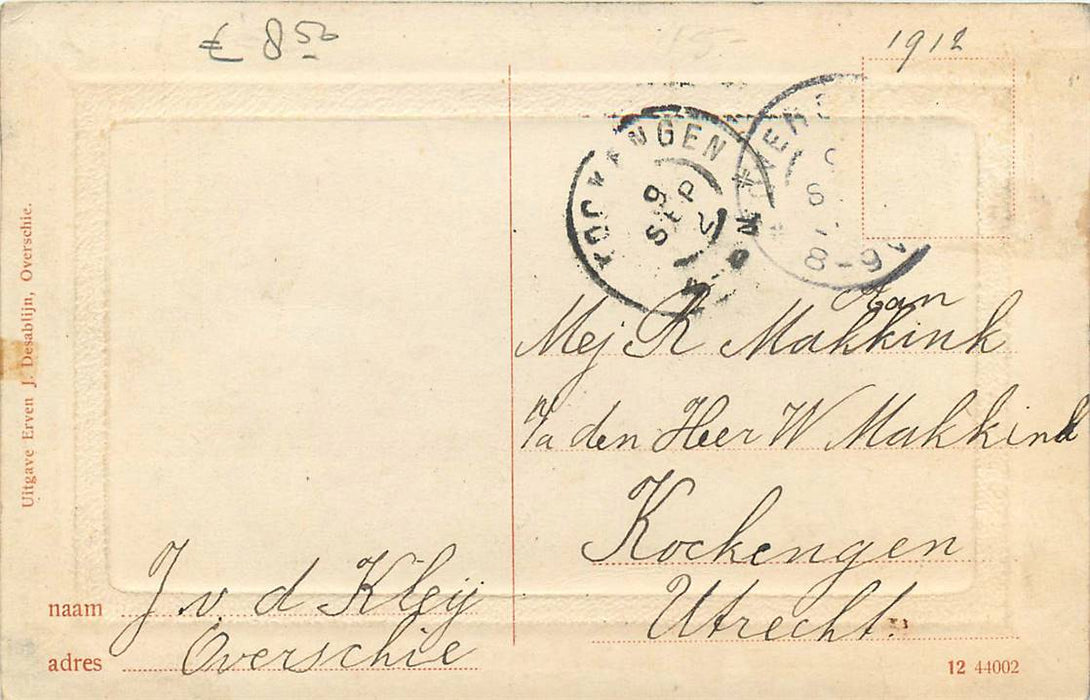 £ 8 50
1912
KOCKENGEN
9
SEP
8-9
Aan
Mej R Makkink
p/a den Heer W Makkink
Kockengen
Utrecht.
naam J v. d Kleij
adres Overschie
Uitgave Erven J. Desablijn, Overschie.
12 44002